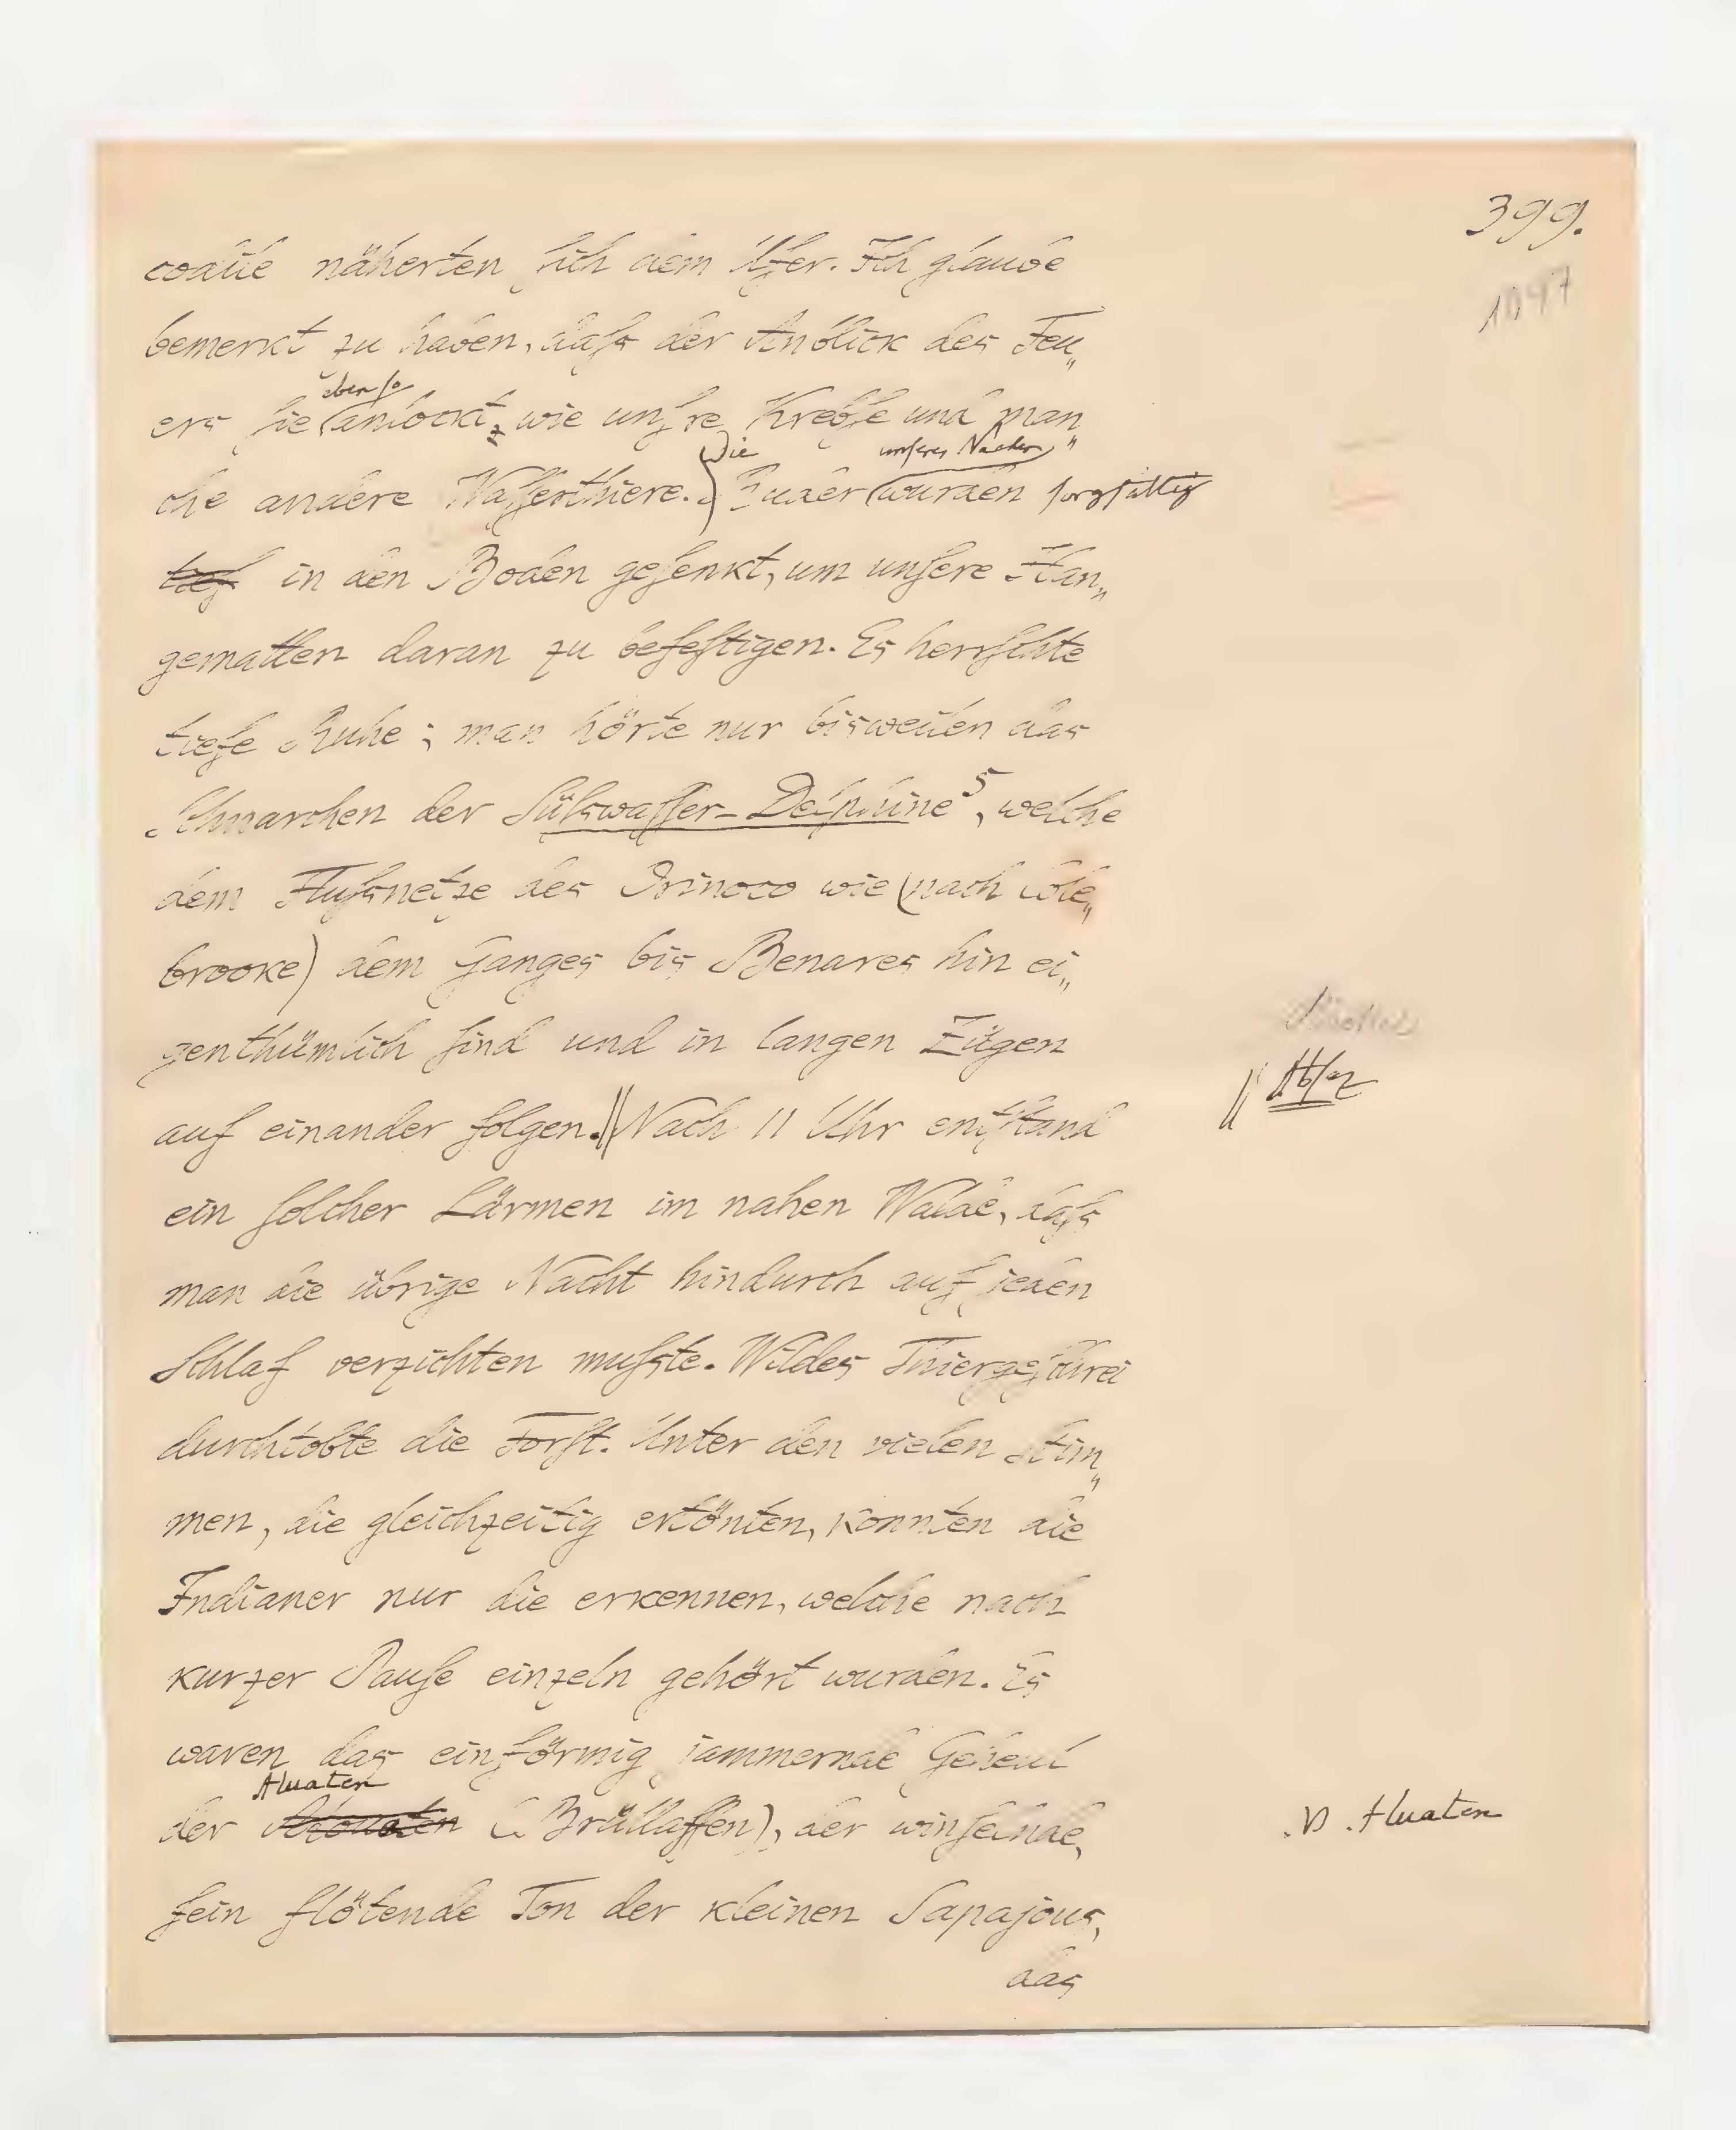 399.
1097
codile näherten sich dem Ufer. Ich glaube
bemerkt zu haben, daſs der Anblick des Feu„
eben ſo
ers ſie anlockt, wie unſre Krebſe und man„
Die unſeres Nachen
che andere Waſſerthiere. Ruder wurden ſorgfältig
tief in den Boden geſenkt, um unſere Han„
gematten daran zu befeſtigen. Es herrſchte
tiefe Ruhe; man hörte nur bisweilen das
Schnarchen der Süſswaſſer-Delphine 5, welche
dem Fluſsnetze des Orinoco wie (nach Cole„
brooke) dem Ganges bis Benares hin ei„
genthümlich ſind und in langen Zügen
auf einander folgen. || Nach 11 Uhr entſtand
|| Abſaz
ein ſolcher Lärmen im nahen Walde, daſs
man die übrige Nacht hindurch auf jeden
Schlaf verzichten muſste. Wildes Thiergeſchrei
durchtobte die Forſt. Unter den vielen Stim„
men, die gleichzeitig ertönten, konnten die
Indianer nur die erkennen, welche nach
kurzer Pauſe einzeln gehört wurden. Es
waren das einförmig jammernde Geheul
Aluaten
der (Brüllaffen), der winſelnde,
Aluaten
fein flötende Ton der kleinen Sapajous,
das